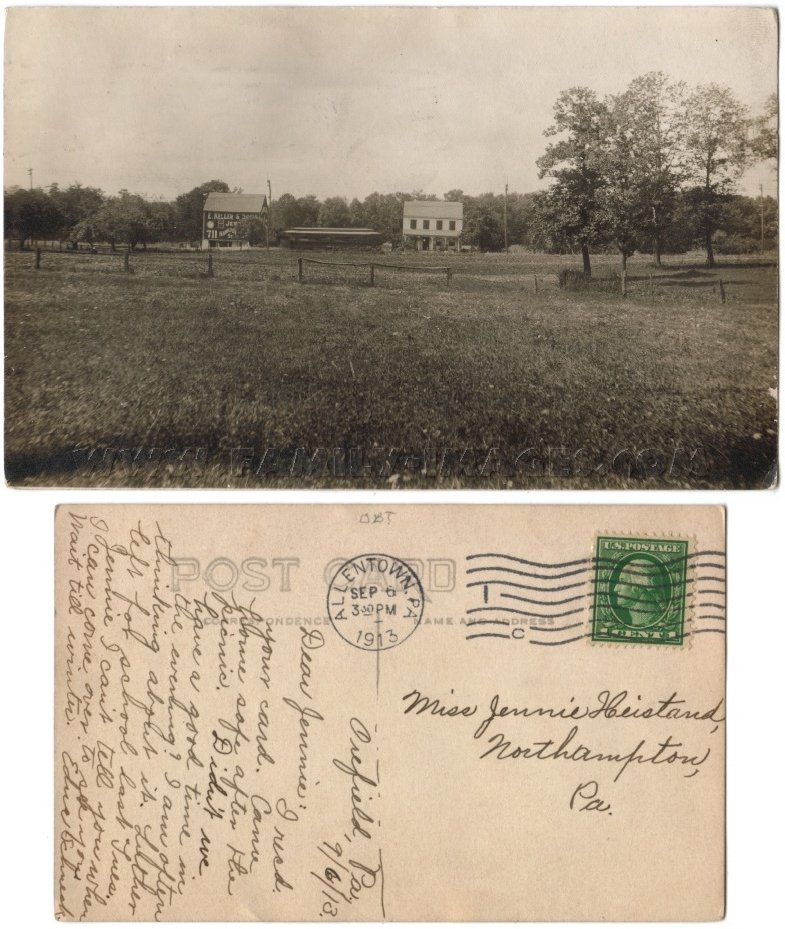 E. KELLER &
JEW
711
WWW.FAMILY-IMAGES.COM
OBT
POST CARD
CORRESPONDENCE
NAME AND ADDRESS
ALLENTOWN, PA
SEP 6
3 30 PM
1913
1
C
U.S. POSTAGE
1 CENT 1
Miss Jennie Heistand,
Northampton,
Pa.
Orefield, Pa.
9/6/13.
Dear Jennie:
I recd.
your card. Came
home safe after the
picnic. Didn't we
have a good time in
the evening? I am often
thinking about it. Luther
left for school last Tues.
Jennie I can't tell you when
I can come over to see you.
Wait till winter.